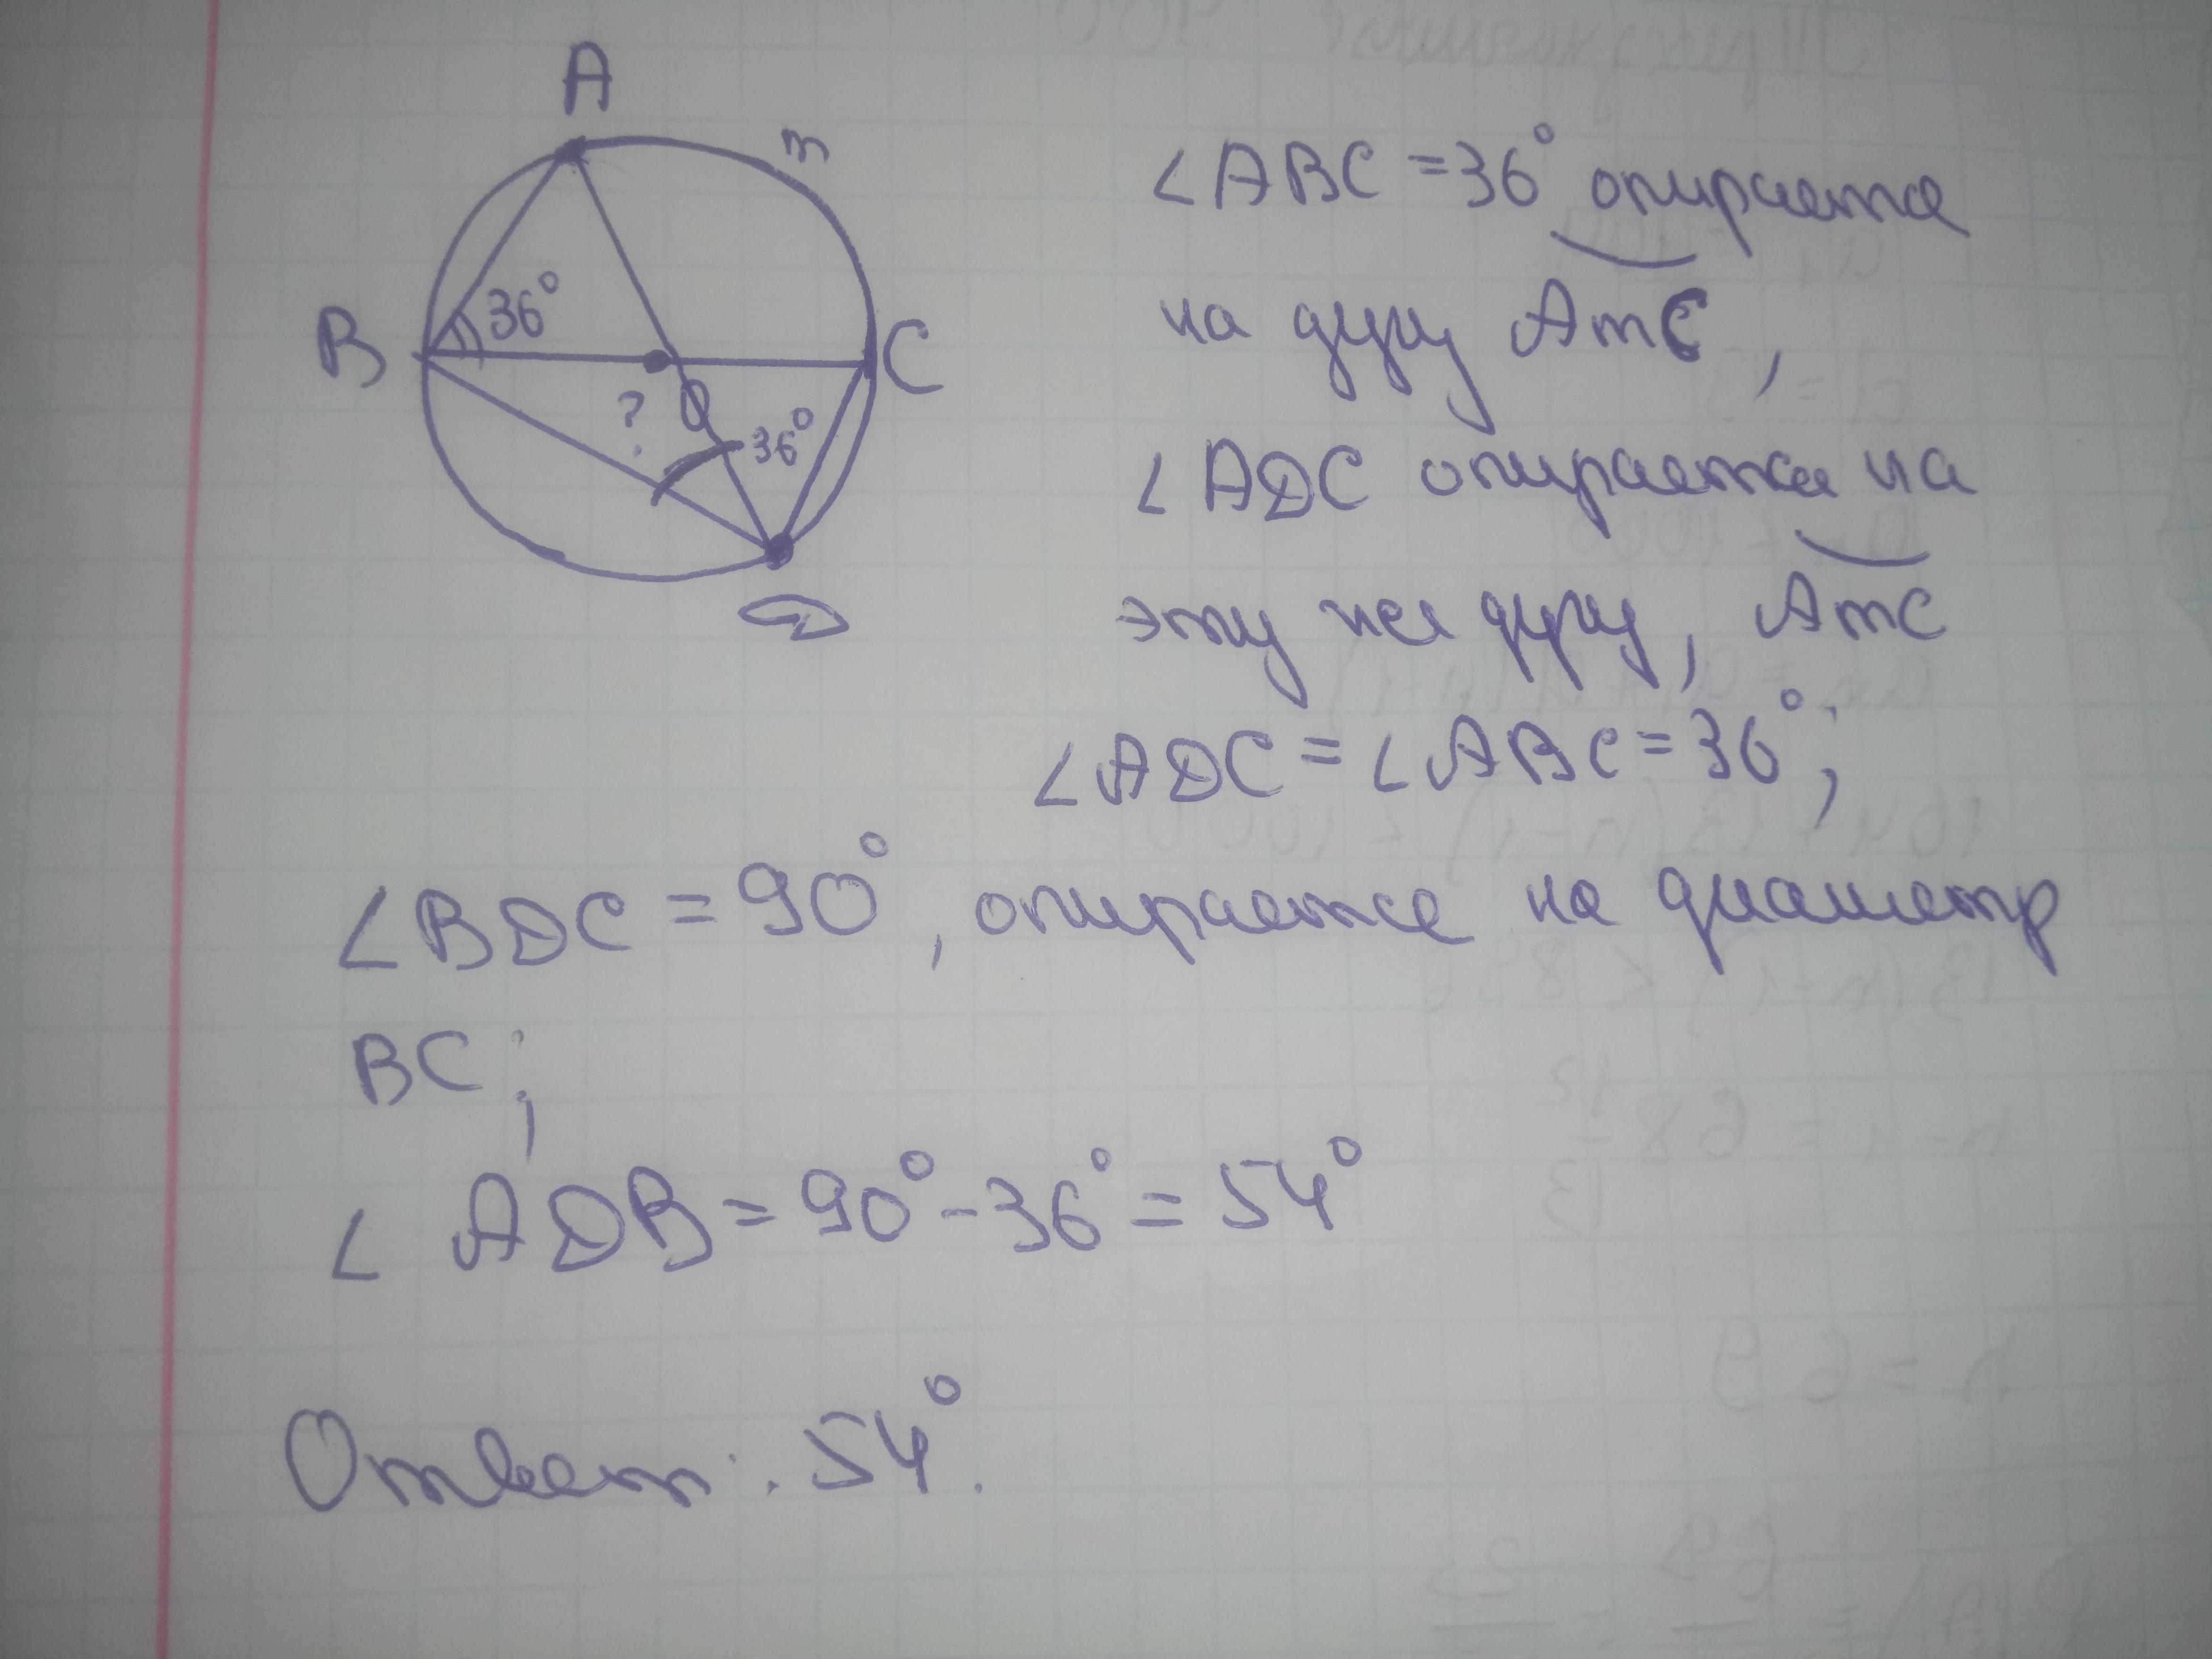 A
m
B
36°
C
?
O
36°
D
∠ABC = 36° опирается
на дугу AmC,
∠ADC опирается на
эту же дугу, AmC
∠ADC = ∠ABC = 36°;
∠BDC = 90°, опирается на диаметр
BC;
∠ADB = 90° - 36° = 54°
Ответ: 54°.